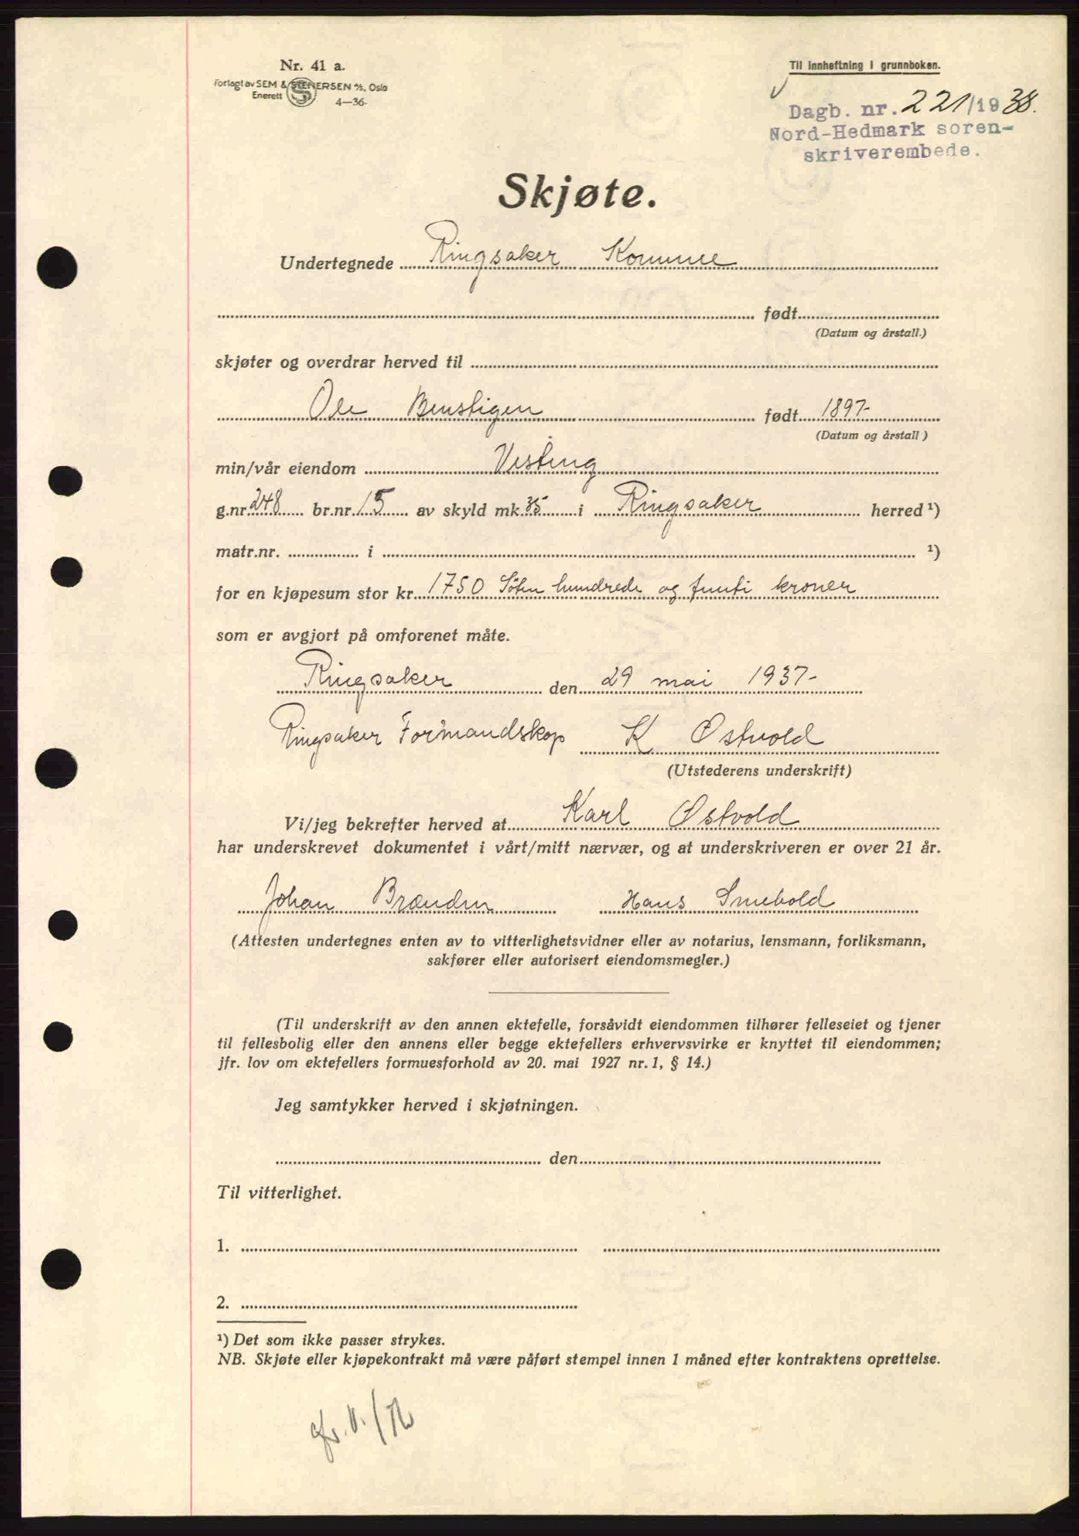 Nr. 41 a.
Forlagt av SEM & STENERSEN A/S, Oslo
Enerett
4—36.
Til innheftning i grunnboken.
Dagb. nr. 221/1938.
Nord-Hedmark soren-
skriverembede.
Skjøte.
Undertegnede Ringsaker Komune
født
(Datum og årstall.)
skjøter og overdrar herved til
Ole Benstigen født 1897-
(Datum og årstall)
min/vår eiendom Visting
g.nr. 248 br.nr. 15 av skyld mk. 35 i Ringsaker herred ¹)
matr.nr. i ¹)
for en kjøpesum stor kr. 1750 Søtten hundrede og femti kroner
som er avgjort på omforenet måte.
Ringsaker den 29 mai 1937-
Ringsaker Formandskap K Østvold
(Utstederens underskrift)
Vi/jeg bekrefter herved at Karl Østvold
har underskrevet dokumentet i vårt/mitt nærvær, og at underskriveren er over 21 år.
Johan Brænden Hans Smebold
(Attesten undertegnes enten av to vitterlighetsvidner eller av notarius, lensmann, forliksmann,
sakfører eller autorisert eiendomsmegler.)
(Til underskrift av den annen ektefelle, forsåvidt eiendommen tilhører felleseiet og tjener
til fellesbolig eller den annens eller begge ektefellers erhvervsvirke er knyttet til eiendommen;
jfr. lov om ektefellers formuesforhold av 20. mai 1927 nr. 1, § 14.)
Jeg samtykker herved i skjøtningen.
den
Til vitterlighet.
1.
2.
¹) Det som ikke passer strykes.
NB. Skjøte eller kjøpekontrakt må være påført stempel innen 1 måned efter kontraktens oprettelse.